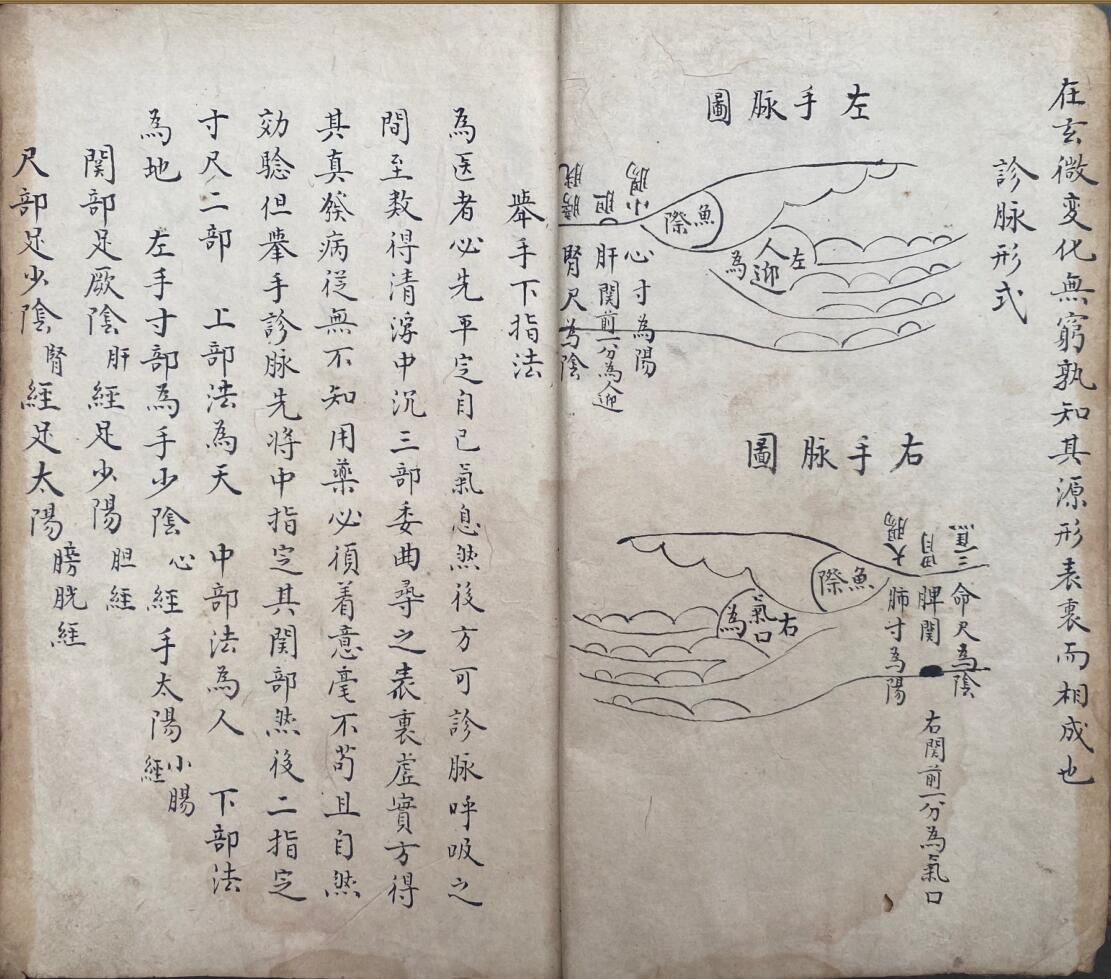 在玄微变化無窮孰知其源形表裏而相成也
診脉形式
左手脉圖
魚際
左人迎為
小腸
胆
膀胱
心寸為陽
肝関前一分為人迎
腎尺為陰
右手脉圖
魚際
右氣口為
三焦
胃
大腸
命尺為陰
脾関
肺寸為陽
右関前一分為氣口
舉手下指法
為医者必先平定自已氣息然後方可診脉呼吸之
間至数得清浮中沉三部委曲尋之表裏虚實方得
其真發病從無不知用藥必須着意毫不苟且自然
効驗但舉手診脉先将中指定其関部然後二指定
寸尺二部 上部法為天 中部法為人 下部法
為地 左手寸部為手少陰心經手太陽小腸經
関部足厥陰肝經足少陽胆經
尺部足少陰腎經足太陽膀胱經